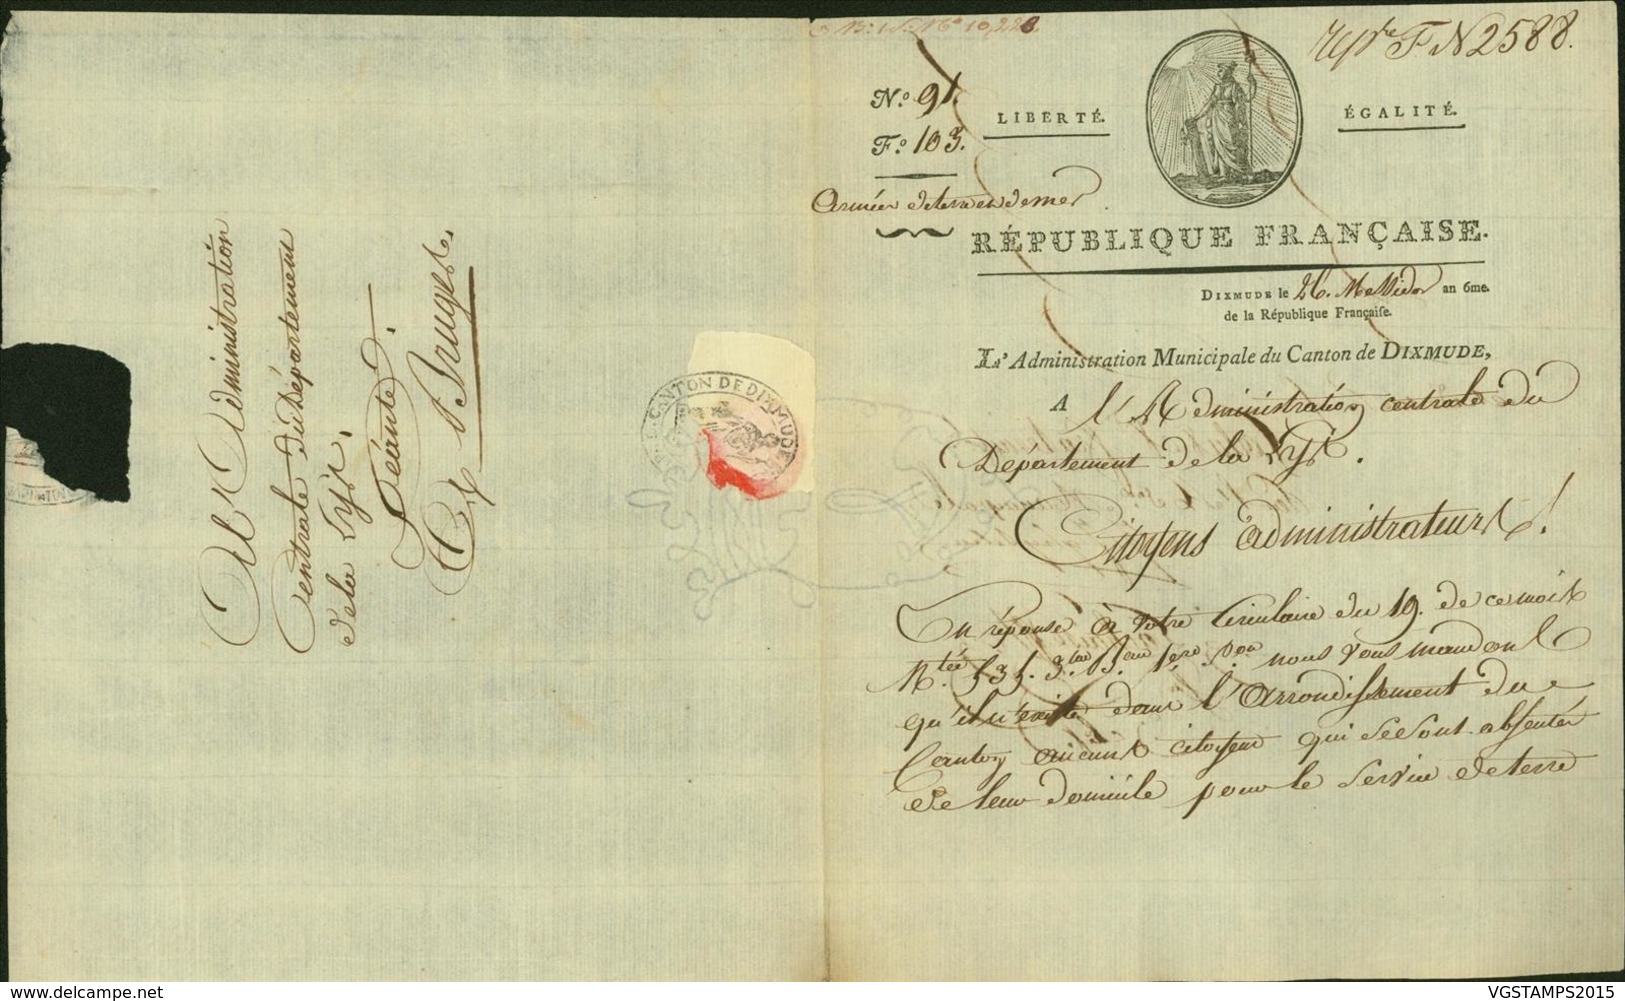 10,228.
Rep.re F N 2588.
N.o 91.
F.o 103.
LIBERTÉ.
ÉGALITÉ.
Armées de terre et de mer
RÉPUBLIQUE FRANÇAISE.
DIXMUDE le 26. Messidor an 6me.
de la République Françaiſe.
L'Administration Municipale du Canton de DIXMUDE,
A l'Administration centrale du
Département de la Lys.
Citoyens administrateurs!
En réponse à votre Circulaire du 19. de ce mois
nous vous mandons
qu'il n'existe dans l'arrondissement du
Canton aucuns citoyens qui se sont absentés
de leur domicile pour le service de terre
Al Administration
Centrale du Département
de la Lys.
Séante
A Bruges.
CANTON DE DIXMUDE
VGSTAMPS2015
www.delcampe.net